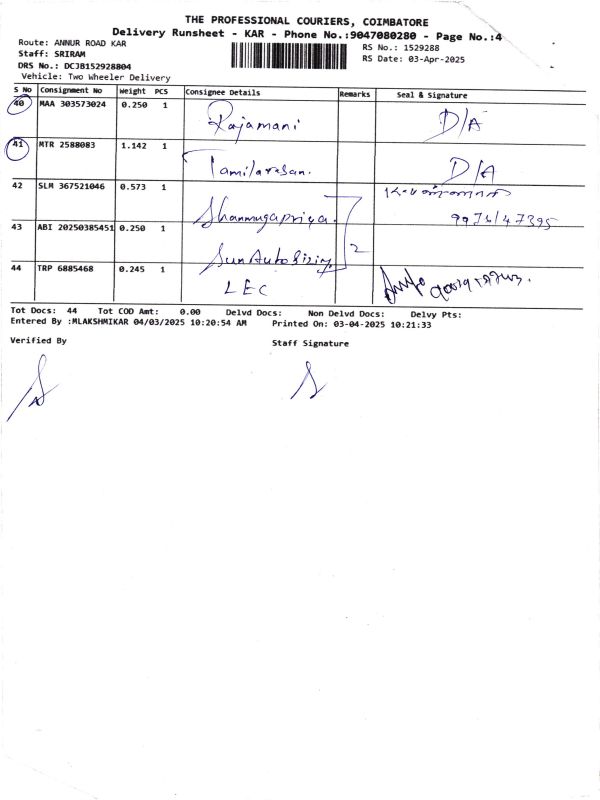 THE PROFESSIONAL COURIERS, COIMBATORE
Delivery Runsheet - KAR - Phone No.:9047080280 - Page No.:4
Route: ANNUR ROAD KAR
RS No.: 1529288
Staff: SRIRAM
RS Date: 03-Apr-2025
DRS No.: DCJB152928804
Vehicle: Two Wheeler Delivery
S No Consignment No Weight PCS Consignee Details Remarks Seal & Signature
40 MAA 303573024 0.250 1 Rajamani D/A
41 MTR 2588083 1.142 1 Tamilarasan. D/A
42 SLM 367521046 0.573 1 Shanmugapriya
43 ABI 20250385451 0.250 1 2
44 TRP 6885468 0.245 1 LEC
Tot Docs: 44 Tot COD Amt: 0.00 Delvd Docs: Non Delvd Docs: Delvy Pts:
Entered By :MLAKSHMIKAR 04/03/2025 10:20:54 AM Printed On: 03-04-2025 10:21:33
Verified By
Staff Signature